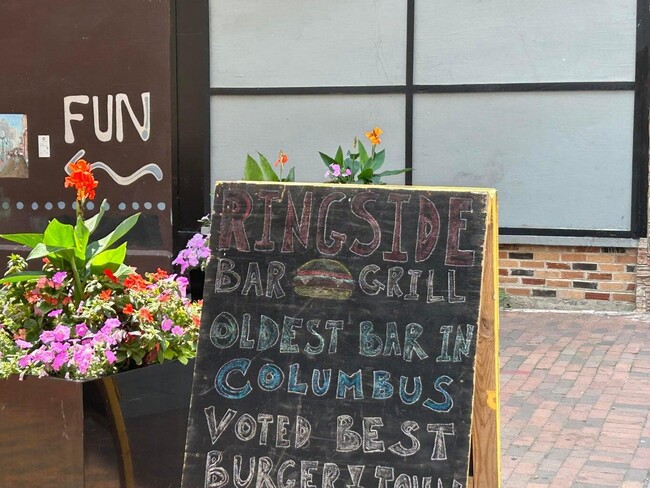 FUN
RINGSIDE
BAR GRILL
OLDEST BAR IN
COLUMBUS
VOTED BEST
BURGER TOWN